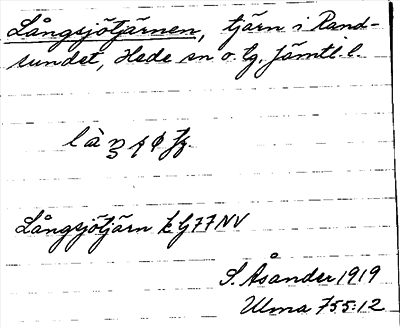 Långsjötjärnen, tjärn i Rand-
sundet, Hede sn o. tg. Jämtl. l.
Långsjötjärn k G77NV
S. Åsander 1919
Ulma 755:12